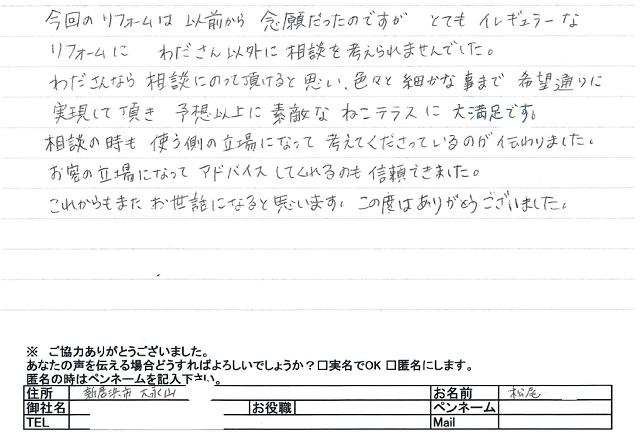 今回のリフォームは 以前から 念願だったのですが とても イレギュラーな
リフォームに わださん以外に 相談を考えられませんでした。
わださんなら 相談にのって頂けると思い、色々と 細かな事まで 希望通りに
実現して頂き 予想以上に 素敵な ねこテラスに 大満足です。
相談の時も 使う側の立場になって 考えてくださっているのが伝わりました。
お客の立場になって アドバイスしてくれるのも 信頼できました。
これからもまた お世話になると思います。この度はありがとうございました。
※ ご協力ありがとうございました。
あなたの声を伝える場合どうすればよろしいでしょうか?☐実名でOK ☐匿名にします。
匿名の時はペンネームを記入下さい。
住所 新居浜市 大永山 お名前 松尾
御社名 お役職 ペンネーム
TEL Mail